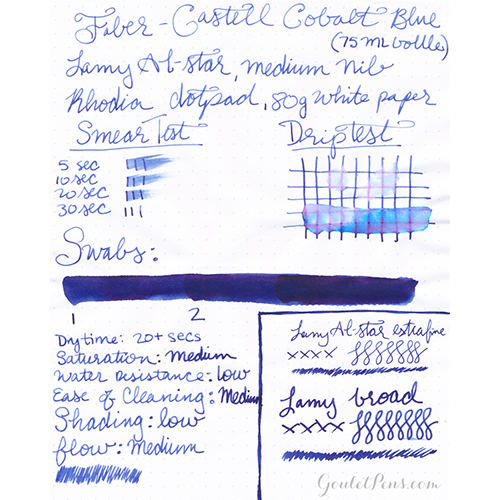 Faber-Castell Cobalt Blue
(75 ML bottle)
Lamy Al-star, medium nib
Rhodia dotpad, 80g white paper
Smear Test
Driptest
5 sec
10 sec
20 sec
30 sec
Swabs:
1
2
Dry time: 20+ secs
Saturation: Medium
Water Resistance: low
Ease of Cleaning: Medium
Shading: low
flow: Medium
Lamy Al-star extrafine
xxxx
Lamy broad
xxxx
GouletPens.com